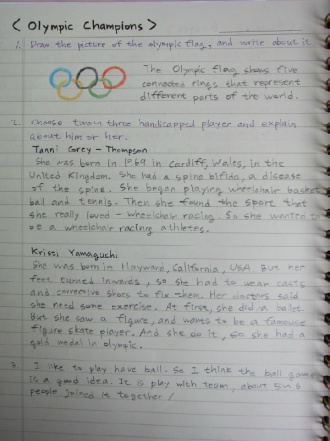 < Olympic Champions >
1. Draw the picture of the olympic flag, and write about it
The Olympic flag shows five
connected rings that represent
different parts of the world.
2. choose two in three handicapped player and explain
about him or her.
Tanni Grey - Thompson
She was born in 1969 in Cardiff, Wales, in the
United Kingdom. She had a spina bifida, a disease
of the spine. She began playing wheelchair basket
ball and tennis. Then she found the sport that
she really loved - wheelchair racing. So she wanted to
be a wheelchair racing athletes.
Kristi Yamaguchi
She was born in Hayward, California, USA. But her
feet turned inwards, so she had to wear casts
and corrective shoes to fix them. Her doctors said
she need some exercise. At first, she did a ballet.
But she saw a figure, and wants to be a famouse
figure skate player. And she do it, so she had a
gold medal in olympic.
3. I like to play have ball. So I think the ball game
is a good idea. It is play with team, about 5
people joined it together!